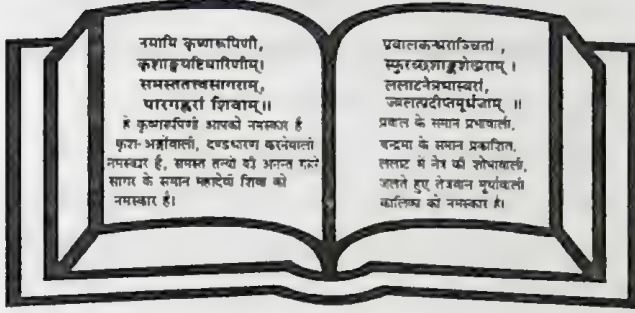 नमामि कृष्णरूपिणी,
कृशाङ्गयष्टिधारिणीम्।
समस्ततत्त्वसागराम्,
पारगह्वरां शिवाम्॥
हे कृष्णरूपिणी आपको नमस्कार है
कृश-अङ्गोंवाली, दण्डधारण करनेवाली
नमस्कार है, समस्त तत्वों की अनन्त गहरे
सागर के समान महादेवी शिवा को
नमस्कार है।
स्फुरच्छशाङ्कशेखराम् ।
ललाटनेत्रभास्वरां,
ज्वलत्प्रदीप्तमूर्धजाम् ॥
के समान प्रभावाली,
चन्द्रमा के समान प्रकाशित,
ललाट में नेत्र की शोभावाली,
जलते हुए तेजवान
कालिका को नमस्कार है।